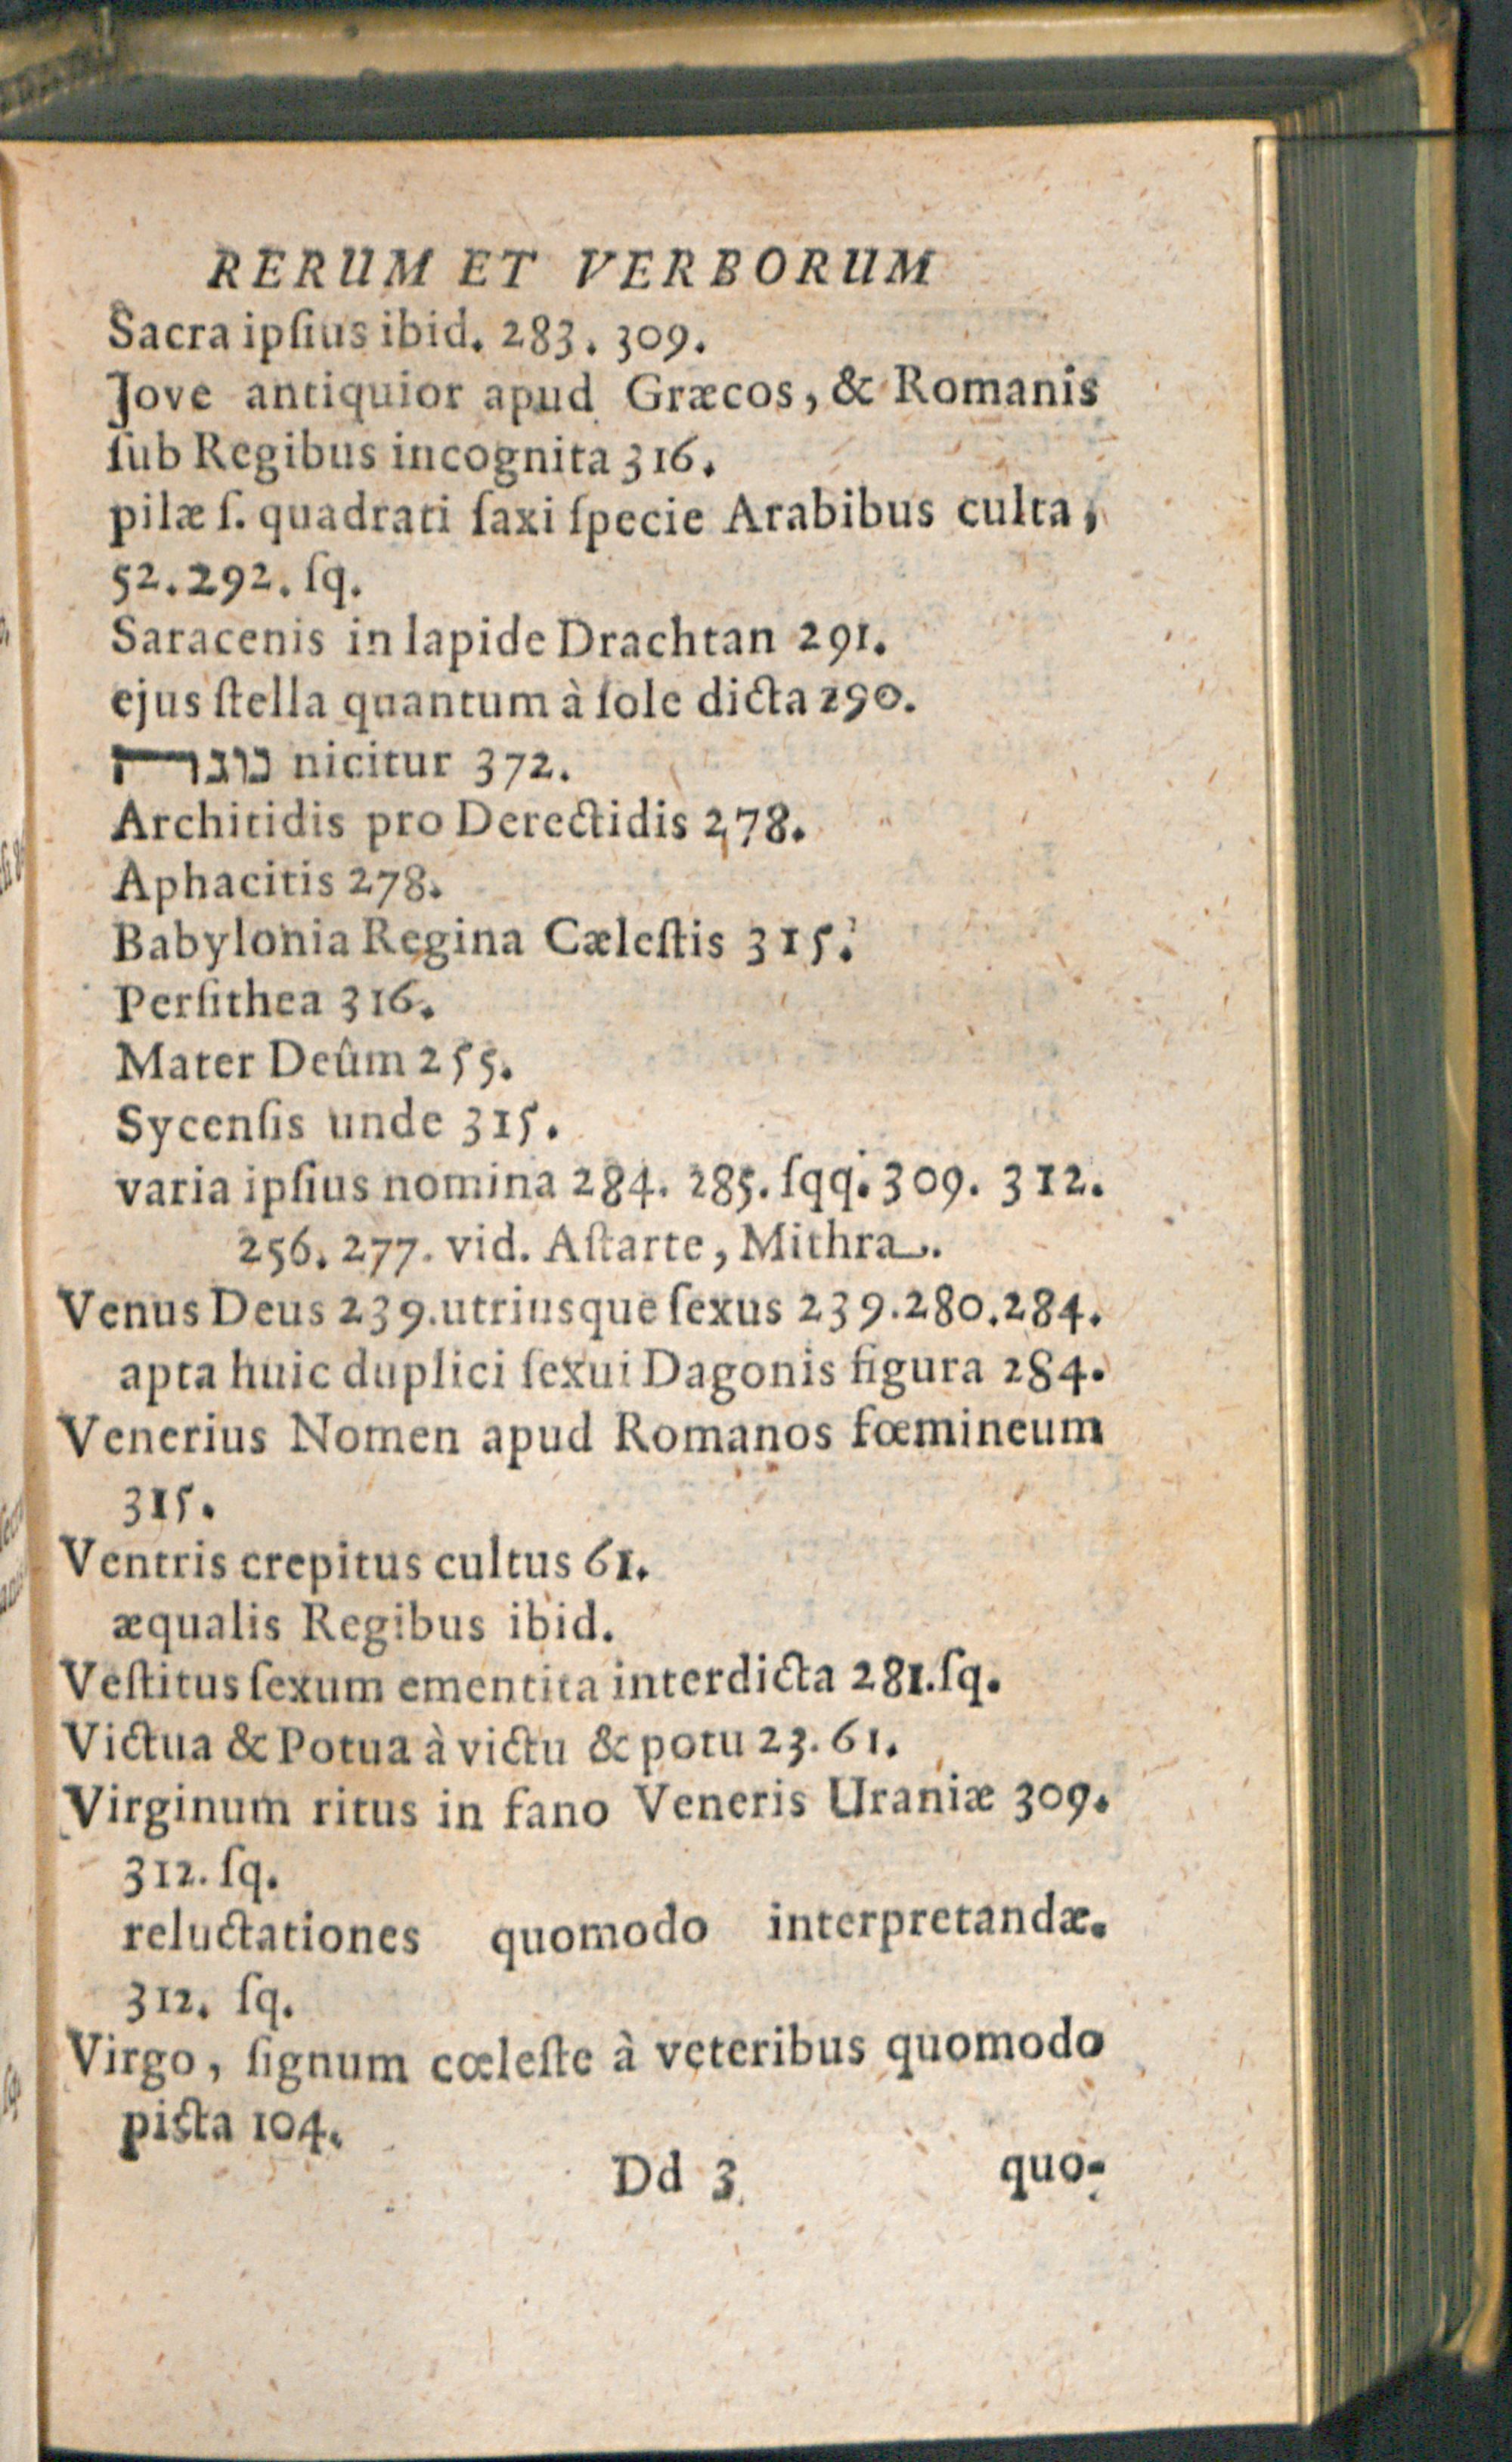 RERUM ET VERBORUM
Sacra ipſius ibid. 283. 309.
Jove antiquior apud Græcos, & Romanis
ſub Regibus incognita 316.
pilæ ſ. quadrati ſaxi ſpecie Arabibus culta,
52. 292. ſq.
Saracenis in lapide Drachtan 291.
ejus ſtella quantum à ſole dicta 290.
nicitur 372.
Architidis pro Derectidis 278.
Aphacitis 278.
Babylonia Regina Cæleſtis 315.
Perſithea 316.
Mater Deûm 255.
Sycenſis unde 315.
varia ipſius nomina 284. 285. ſqq. 309. 312.
256. 277. vid. Aſtarte, Mithra.
Venus Deus 239. utriusque ſexus 239. 280. 284.
apta huic duplici ſexui Dagonis figura 284.
Venerius Nomen apud Romanos fœmineum
315.
Ventris crepitus cultus 61.
æqualis Regibus ibid.
Veſtitus ſexum ementita interdicta 281. ſq.
Victua & Potua à victu & potu 23. 61.
Virginum ritus in fano Veneris Uraniæ 309.
312. ſq.
reluctationes quomodo interpretandæ.
312. ſq.
Virgo, ſignum cœleſte à veteribus quomodo
picta 104.
Dd 3
quo-